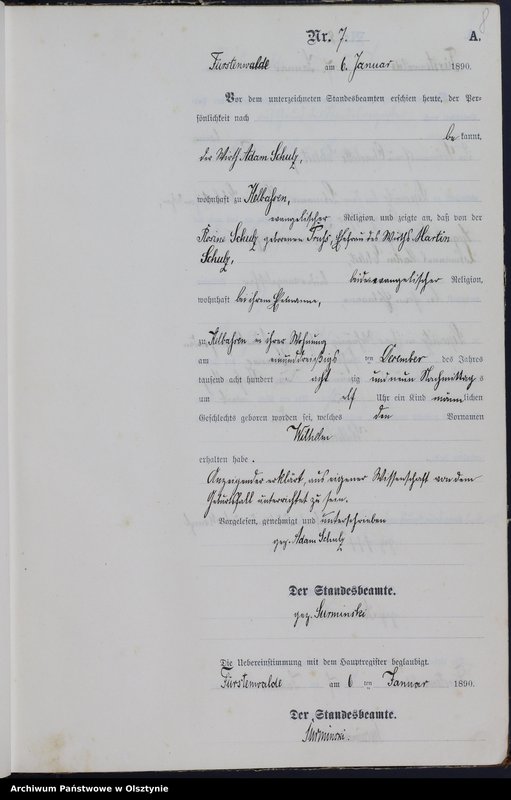 8
Nr. 7. A.
Fürstenwalde am 6. Januar 1890.
Vor dem unterzeichneten Standesbeamten erschien heute, der Per-
sönlichkeit nach
be kannt,
der Wirth Adam Schulz,
wohnhaft zu Kelbahren,
evangelischer Religion, und zeigte an, daß von der
Rosine Schulz, geborenen Fuchs, Ehefrau des Wirths Martin
Schulz,
beide evangelischer Religion,
wohnhaft bei ihrem Ehemanne,
zu Kelbahren in ihrer Wohnung
am einunddreißigs ten December des Jahres
tausend acht hundert acht zig und neun Nachmittag s
um elf Uhr ein Kind männ lichen
Geschlechts geboren worden sei, welches den Vornamen
Wilhelm
erhalten habe.
Anzeigender erklärt, aus eigener Wissenschaft von dem
Geburtsfall unterrichtet zu sein.
Vorgelesen, genehmigt und unterschrieben
gez. Adam Schulz
Der Standesbeamte.
gez. Surminski
Die Uebereinstimmung mit dem Hauptregister beglaubigt.
Fürstenwalde am 6 ten Januar 1890.
Der Standesbeamte.
Surminski.
Archiwum Państwowe w Olsztynie